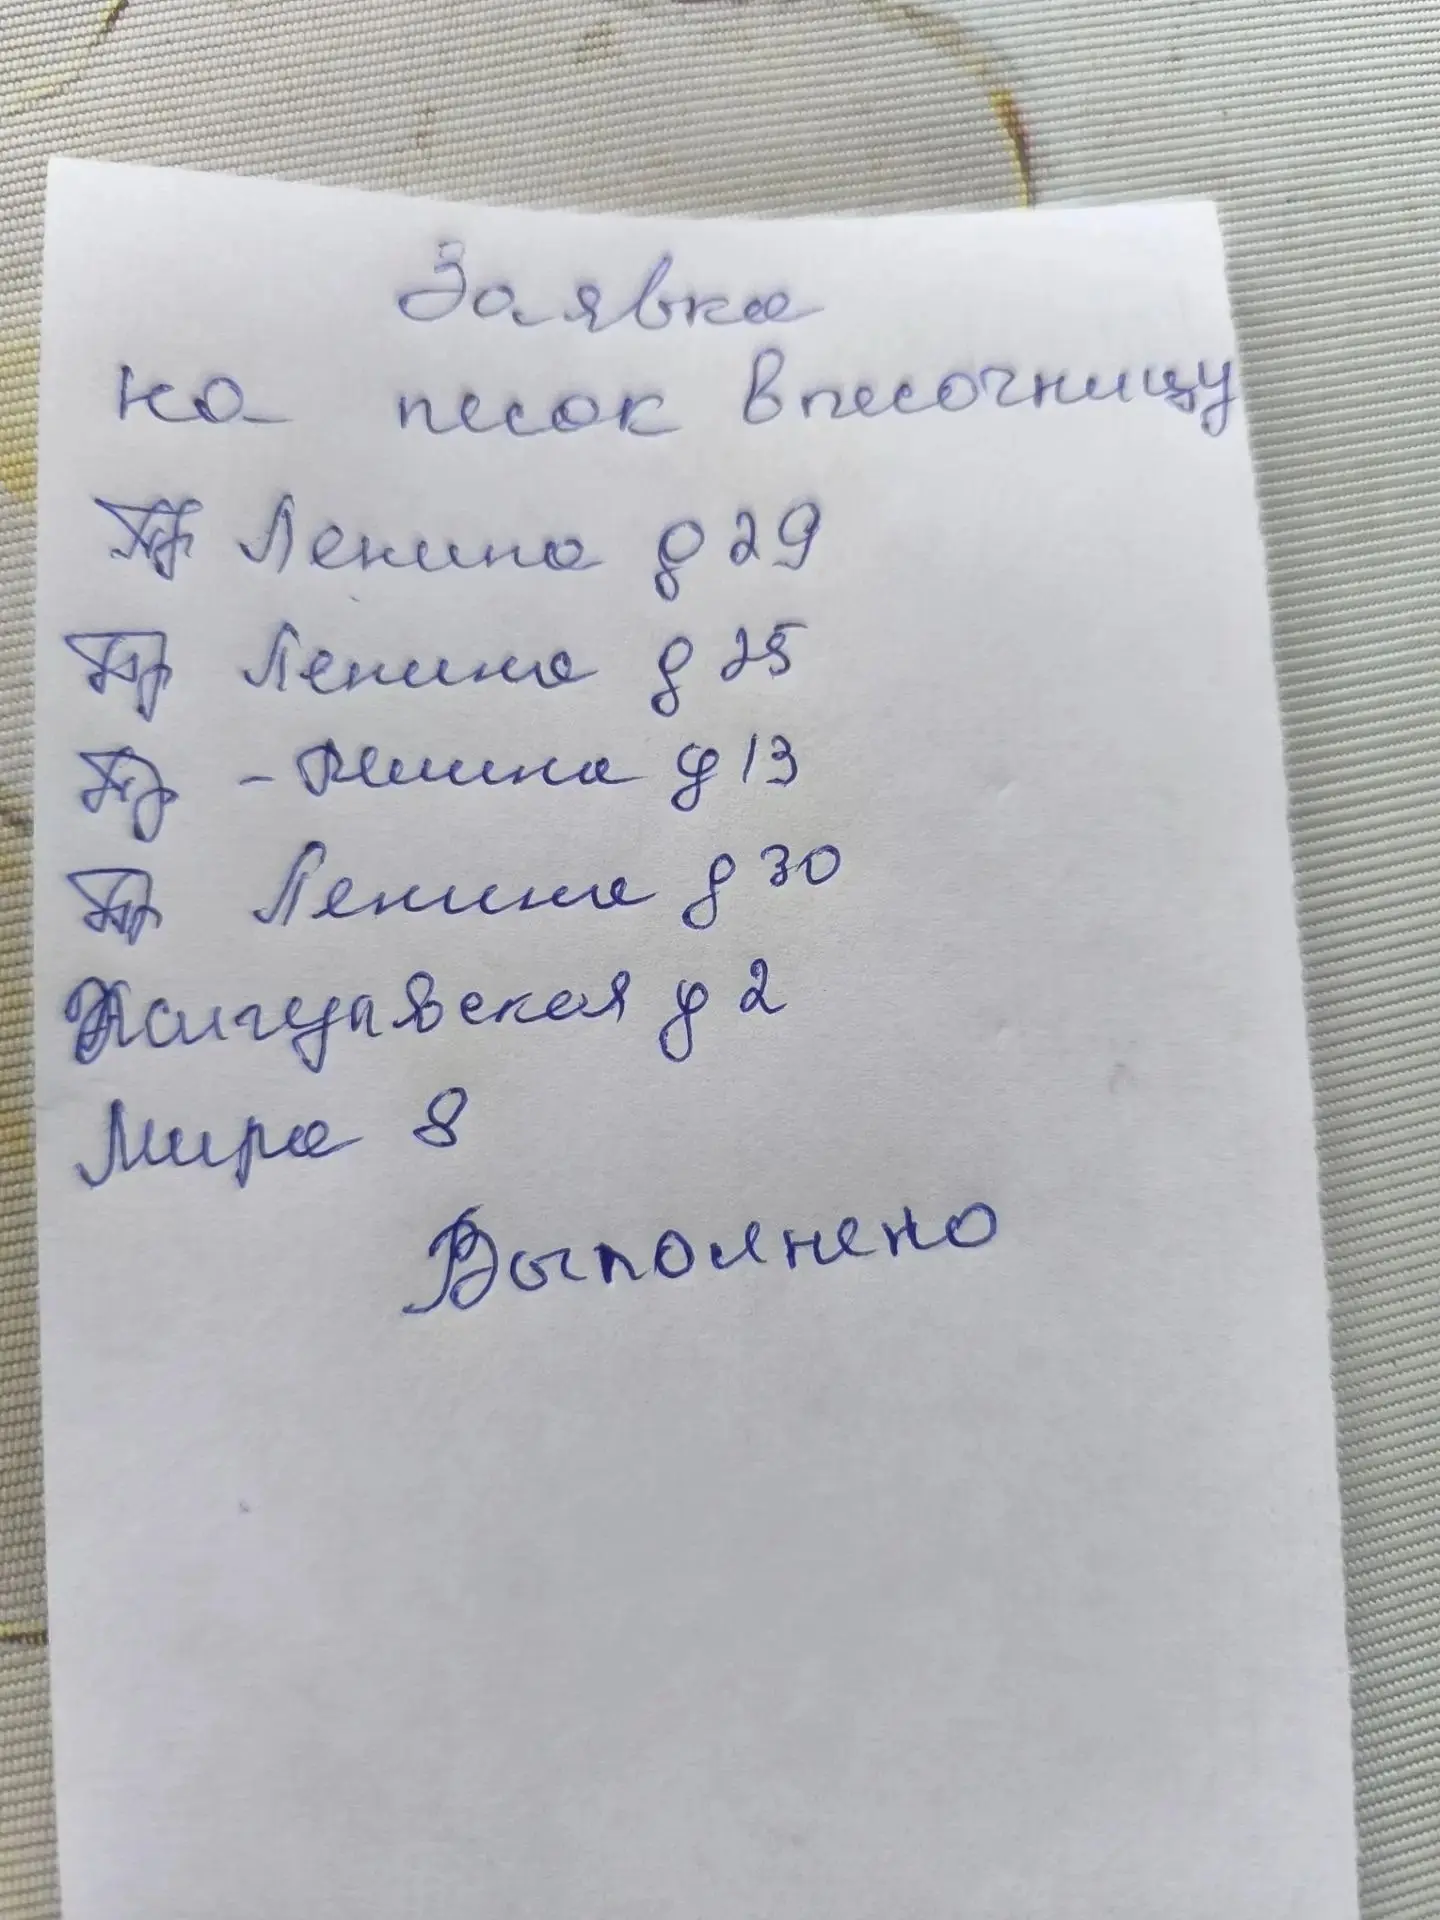 Заявка
на песок в песочницу
Пр Ленина д 29
Пр Ленина д 25
Пр - Ленина д 13
Пр Ленина д 30
д 2
Мира 8
Выполнено